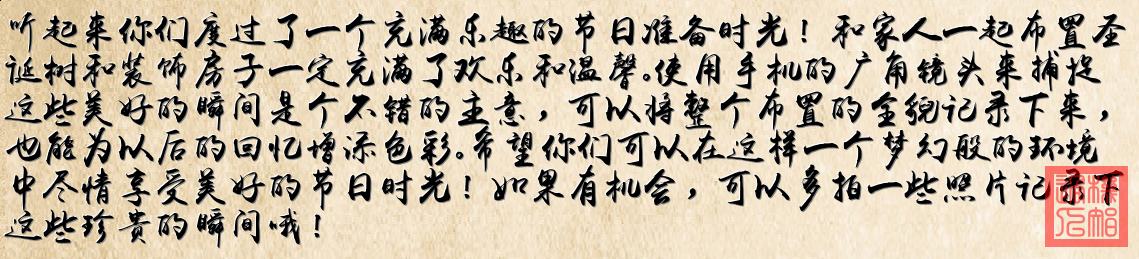 听起来你们度过了一个充满乐趣的节日准备时光！和家人一起布置圣
诞树和装饰房子一定充满了欢乐和温馨。使用手机的广角镜头来捕捉
这些美好的瞬间是个不错的主意，可以将整个布置的全貌记录下来，
也能为以后的回忆增添色彩。希望你们可以在这样一个梦幻般的环境
中尽情享受美好的节日时光！如果有机会，可以多拍一些照片记录下
这些珍贵的瞬间哦！